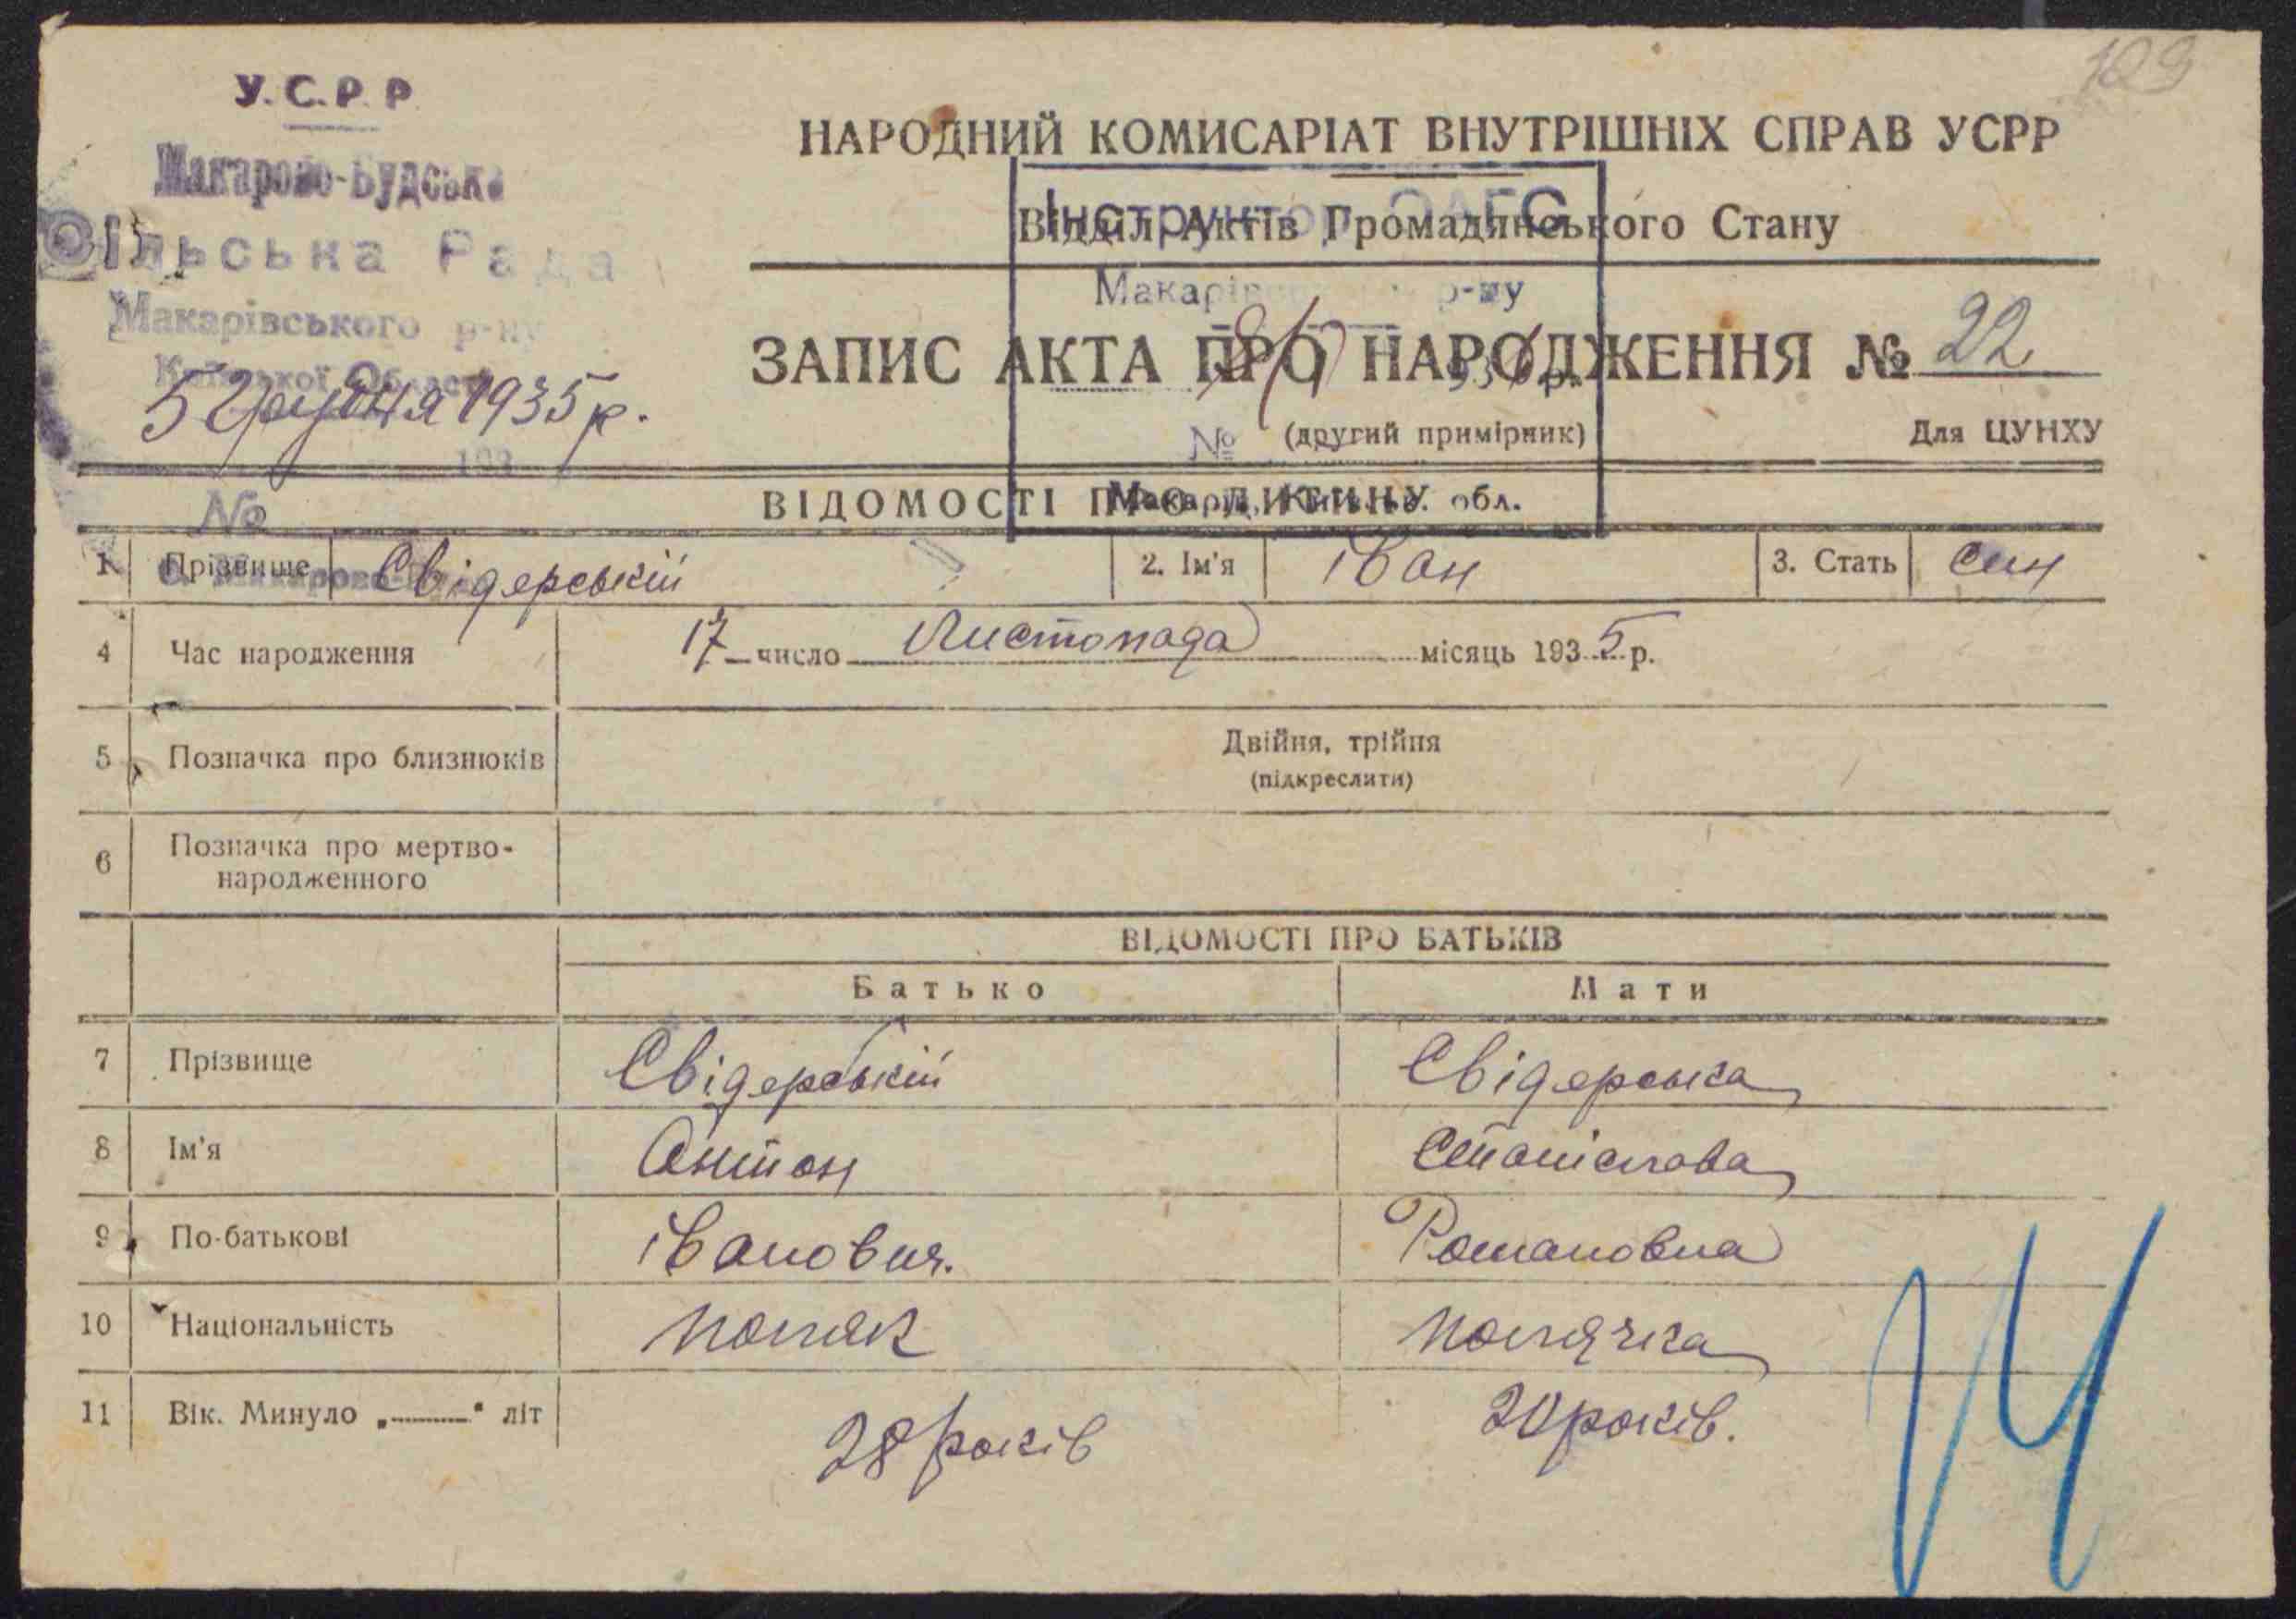 129
У.С.Р.Р.
Макарово-Будська
Сільська Рада
Макарівського р-ну
Київської Області
5 Грудня 1935 р.
193
№
НАРОДНИЙ КОМИСАРІАТ ВНУТРІШНІХ СПРАВ УСРР
Інструктор ЗАГС
Відділ Актів Громадянського Стану
Макарівського р-ну
ЗАПИС АКТА ПРО НАРОДЖЕННЯ № 22
№
(другий примірник)
Для ЦУНХУ
ВІДОМОСТІ ПРО ДИТИНУ
обл.
1 Прізвище Свідерській 2. Ім'я іван 3. Стать син
4 Час народження 17 число Листопада місяць 1935 р.
5 Позначка про близнюків Двійня, трійня
(підкреслити)
6 Позначка про мертво-
народженного
ВІДОМОСТІ ПРО БАТЬКІВ
Батько Мати
7 Прізвище Свідерській Свідерська
8 Ім'я Антон Станіслава
9 По-батькові іванович. Романовна
10 Національність поляк полячка
11 Вік. Минуло „ “ літ 28 років 20 років.